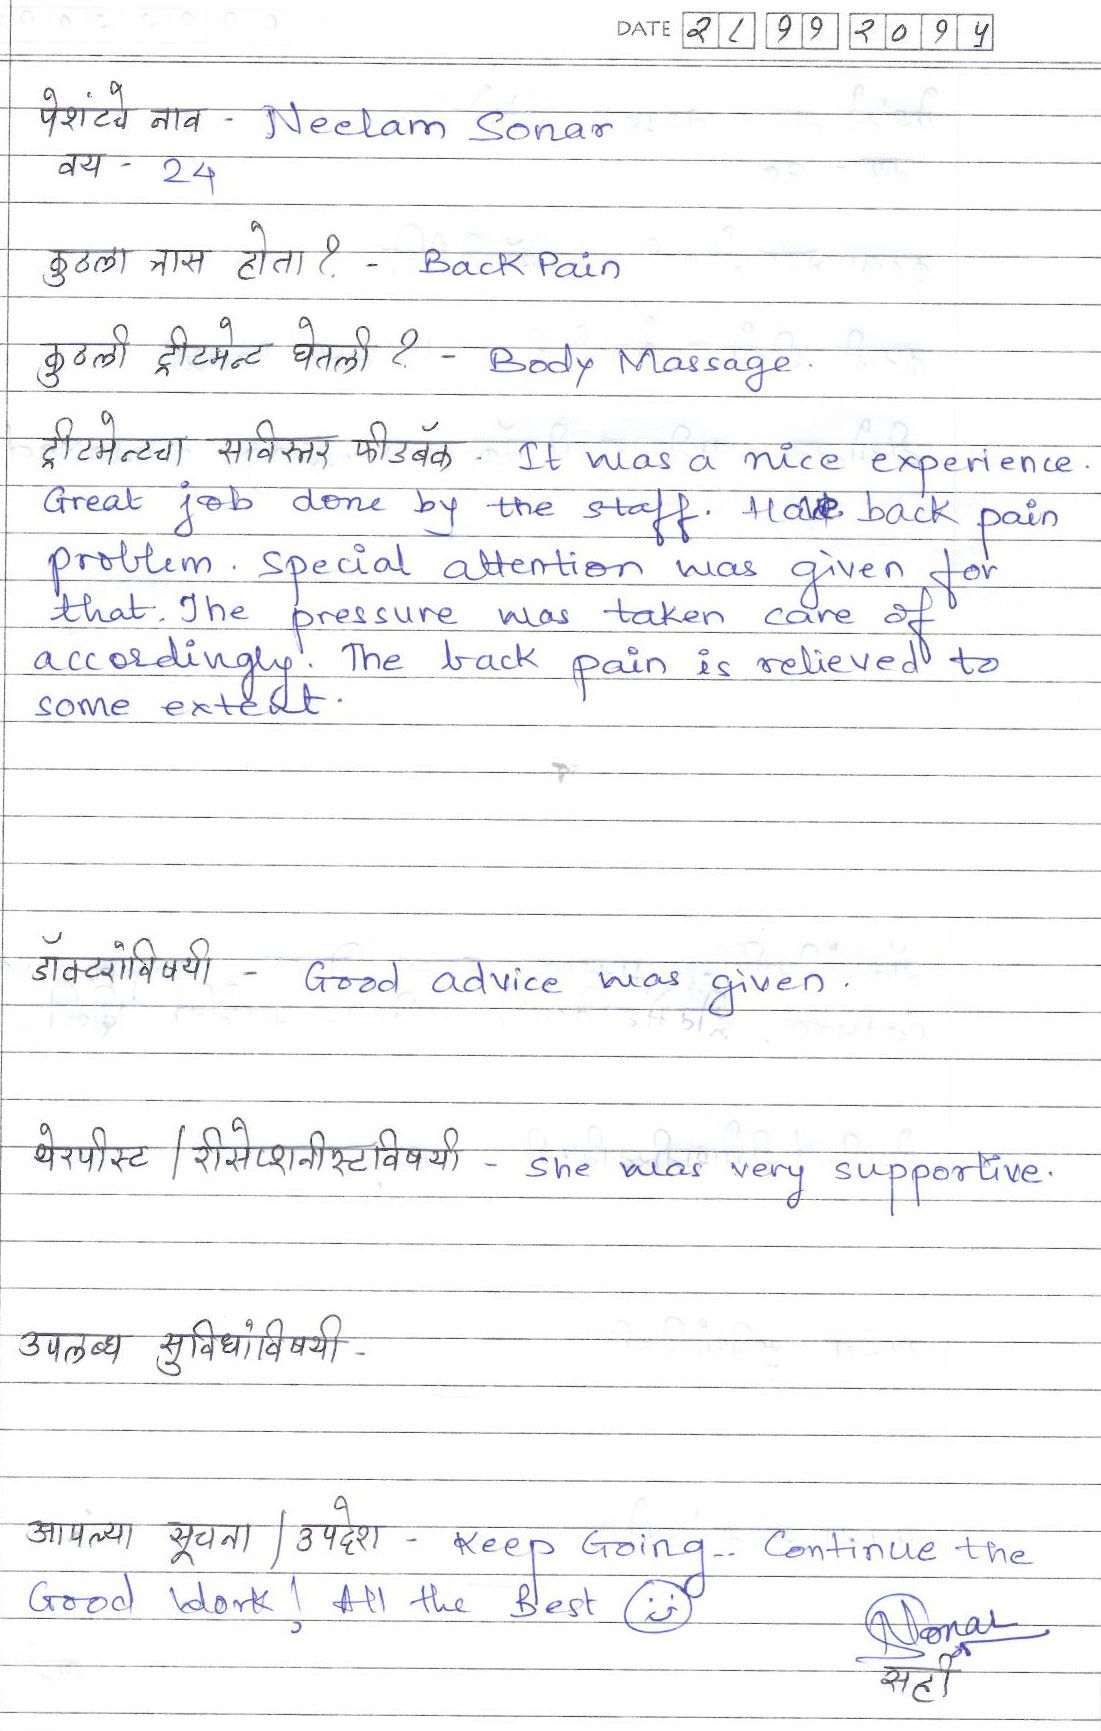 DATE २८ ११ २०१५
पेशंटचे नाव - Neelam Sonar
वय - 24
कुठला त्रास होता? - Back Pain
कुठली ट्रीटमेन्ट घेतली? - Body Massage.
ट्रीटमेन्टचा सविस्तर फीडबॅक. It was a nice experience.
Great job done by the staff. Have back pain
problem. Special attention was given for
that. The pressure was taken care of
accordingly. The back pain is relieved to
some extent.
डॉक्टरांविषयी - Good advice was given.
थेरपीस्ट / रीसेप्शनीस्टविषयी - She was very supportive.
उपलब्ध सुविधांविषयी -
आपल्या सूचना / उपदेश - Keep Going... Continue the
Good Work! All the Best
Sonar
सही